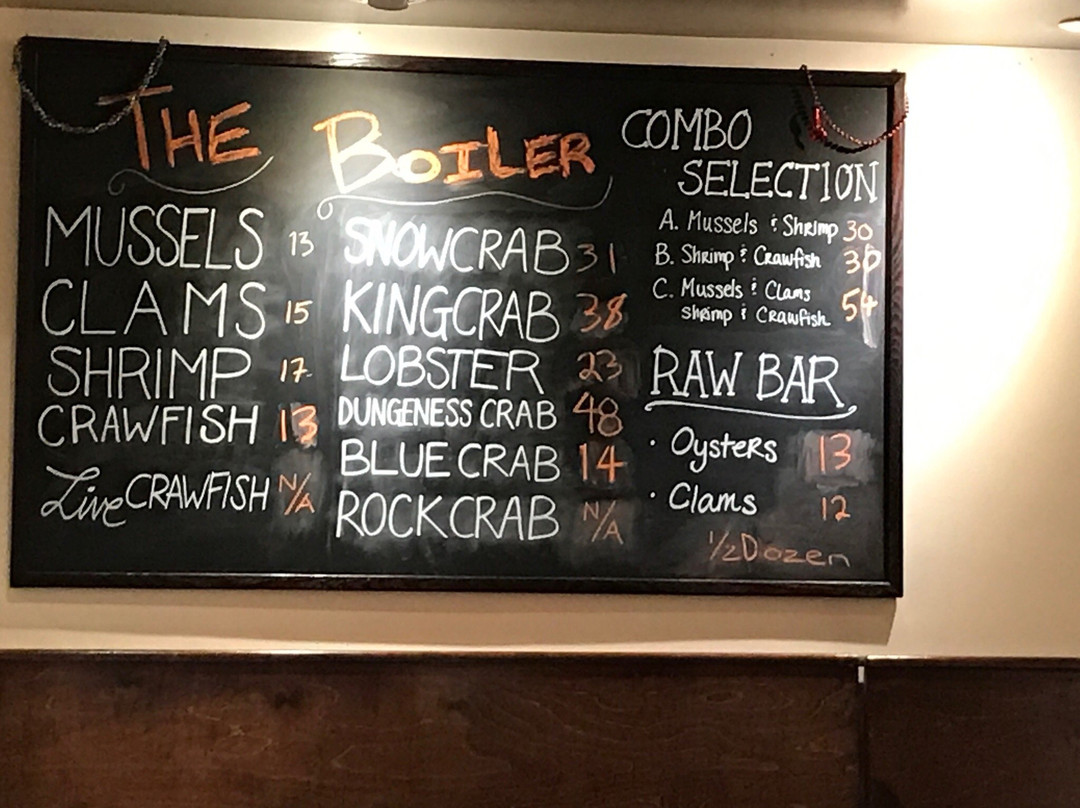 THE BOILER
MUSSELS 13
CLAMS 15
SHRIMP 17
CRAWFISH 13
Live CRAWFISH N/A
SNOWCRAB 31
KINGCRAB 38
LOBSTER 23
DUNGENESS CRAB 48
BLUE CRAB 14
ROCK CRAB N/A
COMBO
SELECTION
A. Mussels & Shrimp 30
B. Shrimp & Crawfish 30
C. Mussels & Clams
shrimp & Crawfish 54
RAW BAR
• Oysters 13
• Clams 12
1/2 Dozen